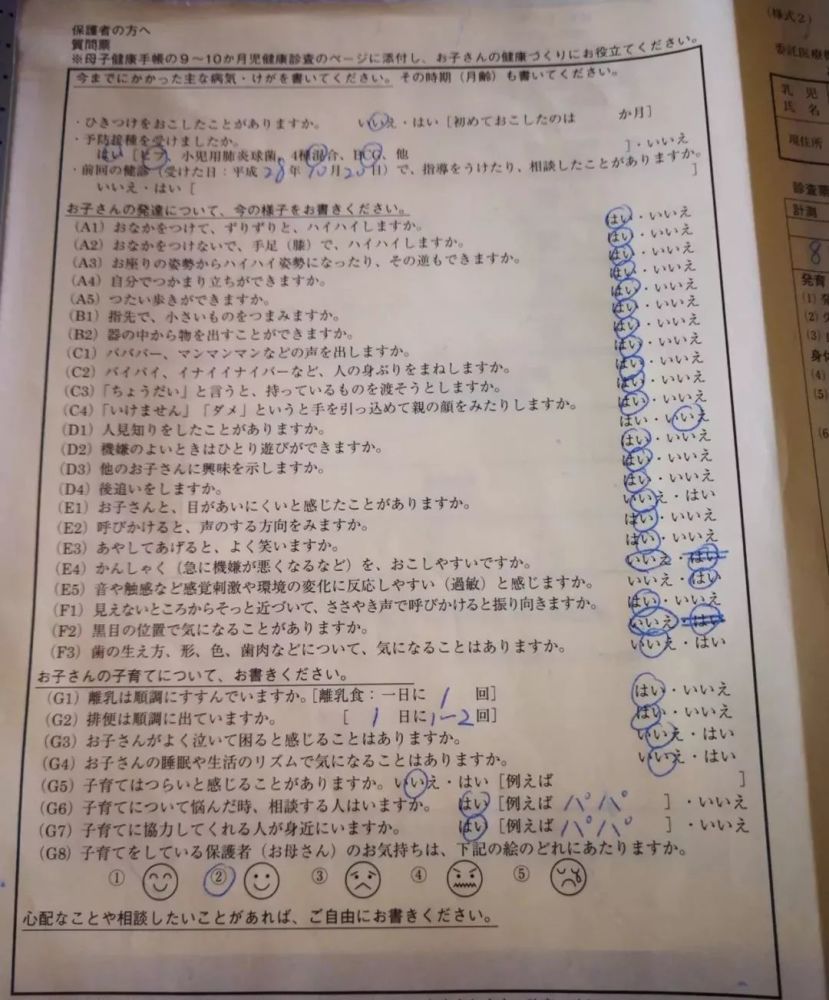 保護者の方へ
質問票
※母子健康手帳の9～10か月児健康診査のページに添付し、お子さんの健康づくりにお役立てください。
今までにかかった主な病気・けがを書いてください。その時期（月齢）も書いてください。
・ひきつけをおこしたことがありますか。 いいえ・はい［初めておこしたのは か月］
・予防接種を受けましたか。
はい［ヒブ、小児用肺炎球菌、4種混合、BCG、他 ］・いいえ
・前回の健診（受けた日：平成28年10月20日）で、指導をうけたり、相談したことがありますか。
いいえ・はい［ ］
お子さんの発達について、今の様子をお書きください。
（A1）おなかをつけて、ずりずりと、ハイハイしますか。 はい・いいえ
（A2）おなかをつけないで、手足（膝）で、ハイハイしますか。 はい・いいえ
（A3）お座りの姿勢からハイハイ姿勢になったり、その逆もできますか。 はい・いいえ
（A4）自分でつかまり立ちができますか。 はい・いいえ
（A5）つたい歩きができますか。 はい・いいえ
（B1）指先で、小さいものをつまみますか。 はい・いいえ
（B2）器の中から物を出すことができますか。 はい・いいえ
（C1）バババー、マンマンマンなどの声を出しますか。 はい・いいえ
（C2）バイバイ、イナイイナイバーなど、人の身ぶりをまねしますか。 はい・いいえ
（C3）「ちょうだい」と言うと、持っているものを渡そうとしますか。 はい・いいえ
（C4）「いけません」「ダメ」というと手を引っ込めて親の顔をみたりしますか。 はい・いいえ
（D1）人見知りをしたことがありますか。 はい・いいえ
（D2）機嫌のよいときはひとり遊びができますか。 はい・いいえ
（D3）他のお子さんに興味を示しますか。 はい・いいえ
（D4）後追いをしますか。 はい・いいえ
（E1）お子さんと、目があいにくいと感じたことがありますか。 いいえ・はい
（E2）呼びかけると、声のする方向をみますか。 はい・いいえ
（E3）あやしてあげると、よく笑いますか。 はい・いいえ
（E4）かんしゃく（急に機嫌が悪くなるなど）を、おこしやすいですか。 いいえ・はい
（E5）音や触感など感覚刺激や環境の変化に反応しやすい（過敏）と感じますか。 いいえ・はい
（F1）見えないところからそっと近づいて、ささやき声で呼びかけると振り向きますか。 はい・いいえ
（F2）黒目の位置で気になることがありますか。 いいえ・はい
（F3）歯の生え方、形、色、歯肉などについて、気になることはありますか。 いいえ・はい
お子さんの子育てについて、お書きください。
（G1）離乳は順調にすすんでいますか。［離乳食：一日に 1 回］ はい・いいえ
（G2）排便は順調に出ていますか。 ［ 1 日に1～2回］ はい・いいえ
（G3）お子さんがよく泣いて困ると感じることはありますか。 いいえ・はい
（G4）お子さんの睡眠や生活のリズムで気になることはありますか。 いいえ・はい
（G5）子育てはつらいと感じることがありますか。いいえ・はい［例えば ］
（G6）子育てについて悩んだ時、相談する人はいますか。 はい［例えば パパ ］・いいえ
（G7）子育てに協力してくれる人が身近にいますか。 はい［例えば パパ ］・いいえ
（G8）子育てをしている保護者（お母さん）のお気持ちは、下記の絵のどれにあたりますか。
① ② ③ ④ ⑤
心配なことや相談したいことがあれば、ご自由にお書きください。
（様式2）
委託医療
乳児
氏名
現住所
診査票
計測
8
発育
(1)
(2)
(3)
身体
(4)
(5)
(6)